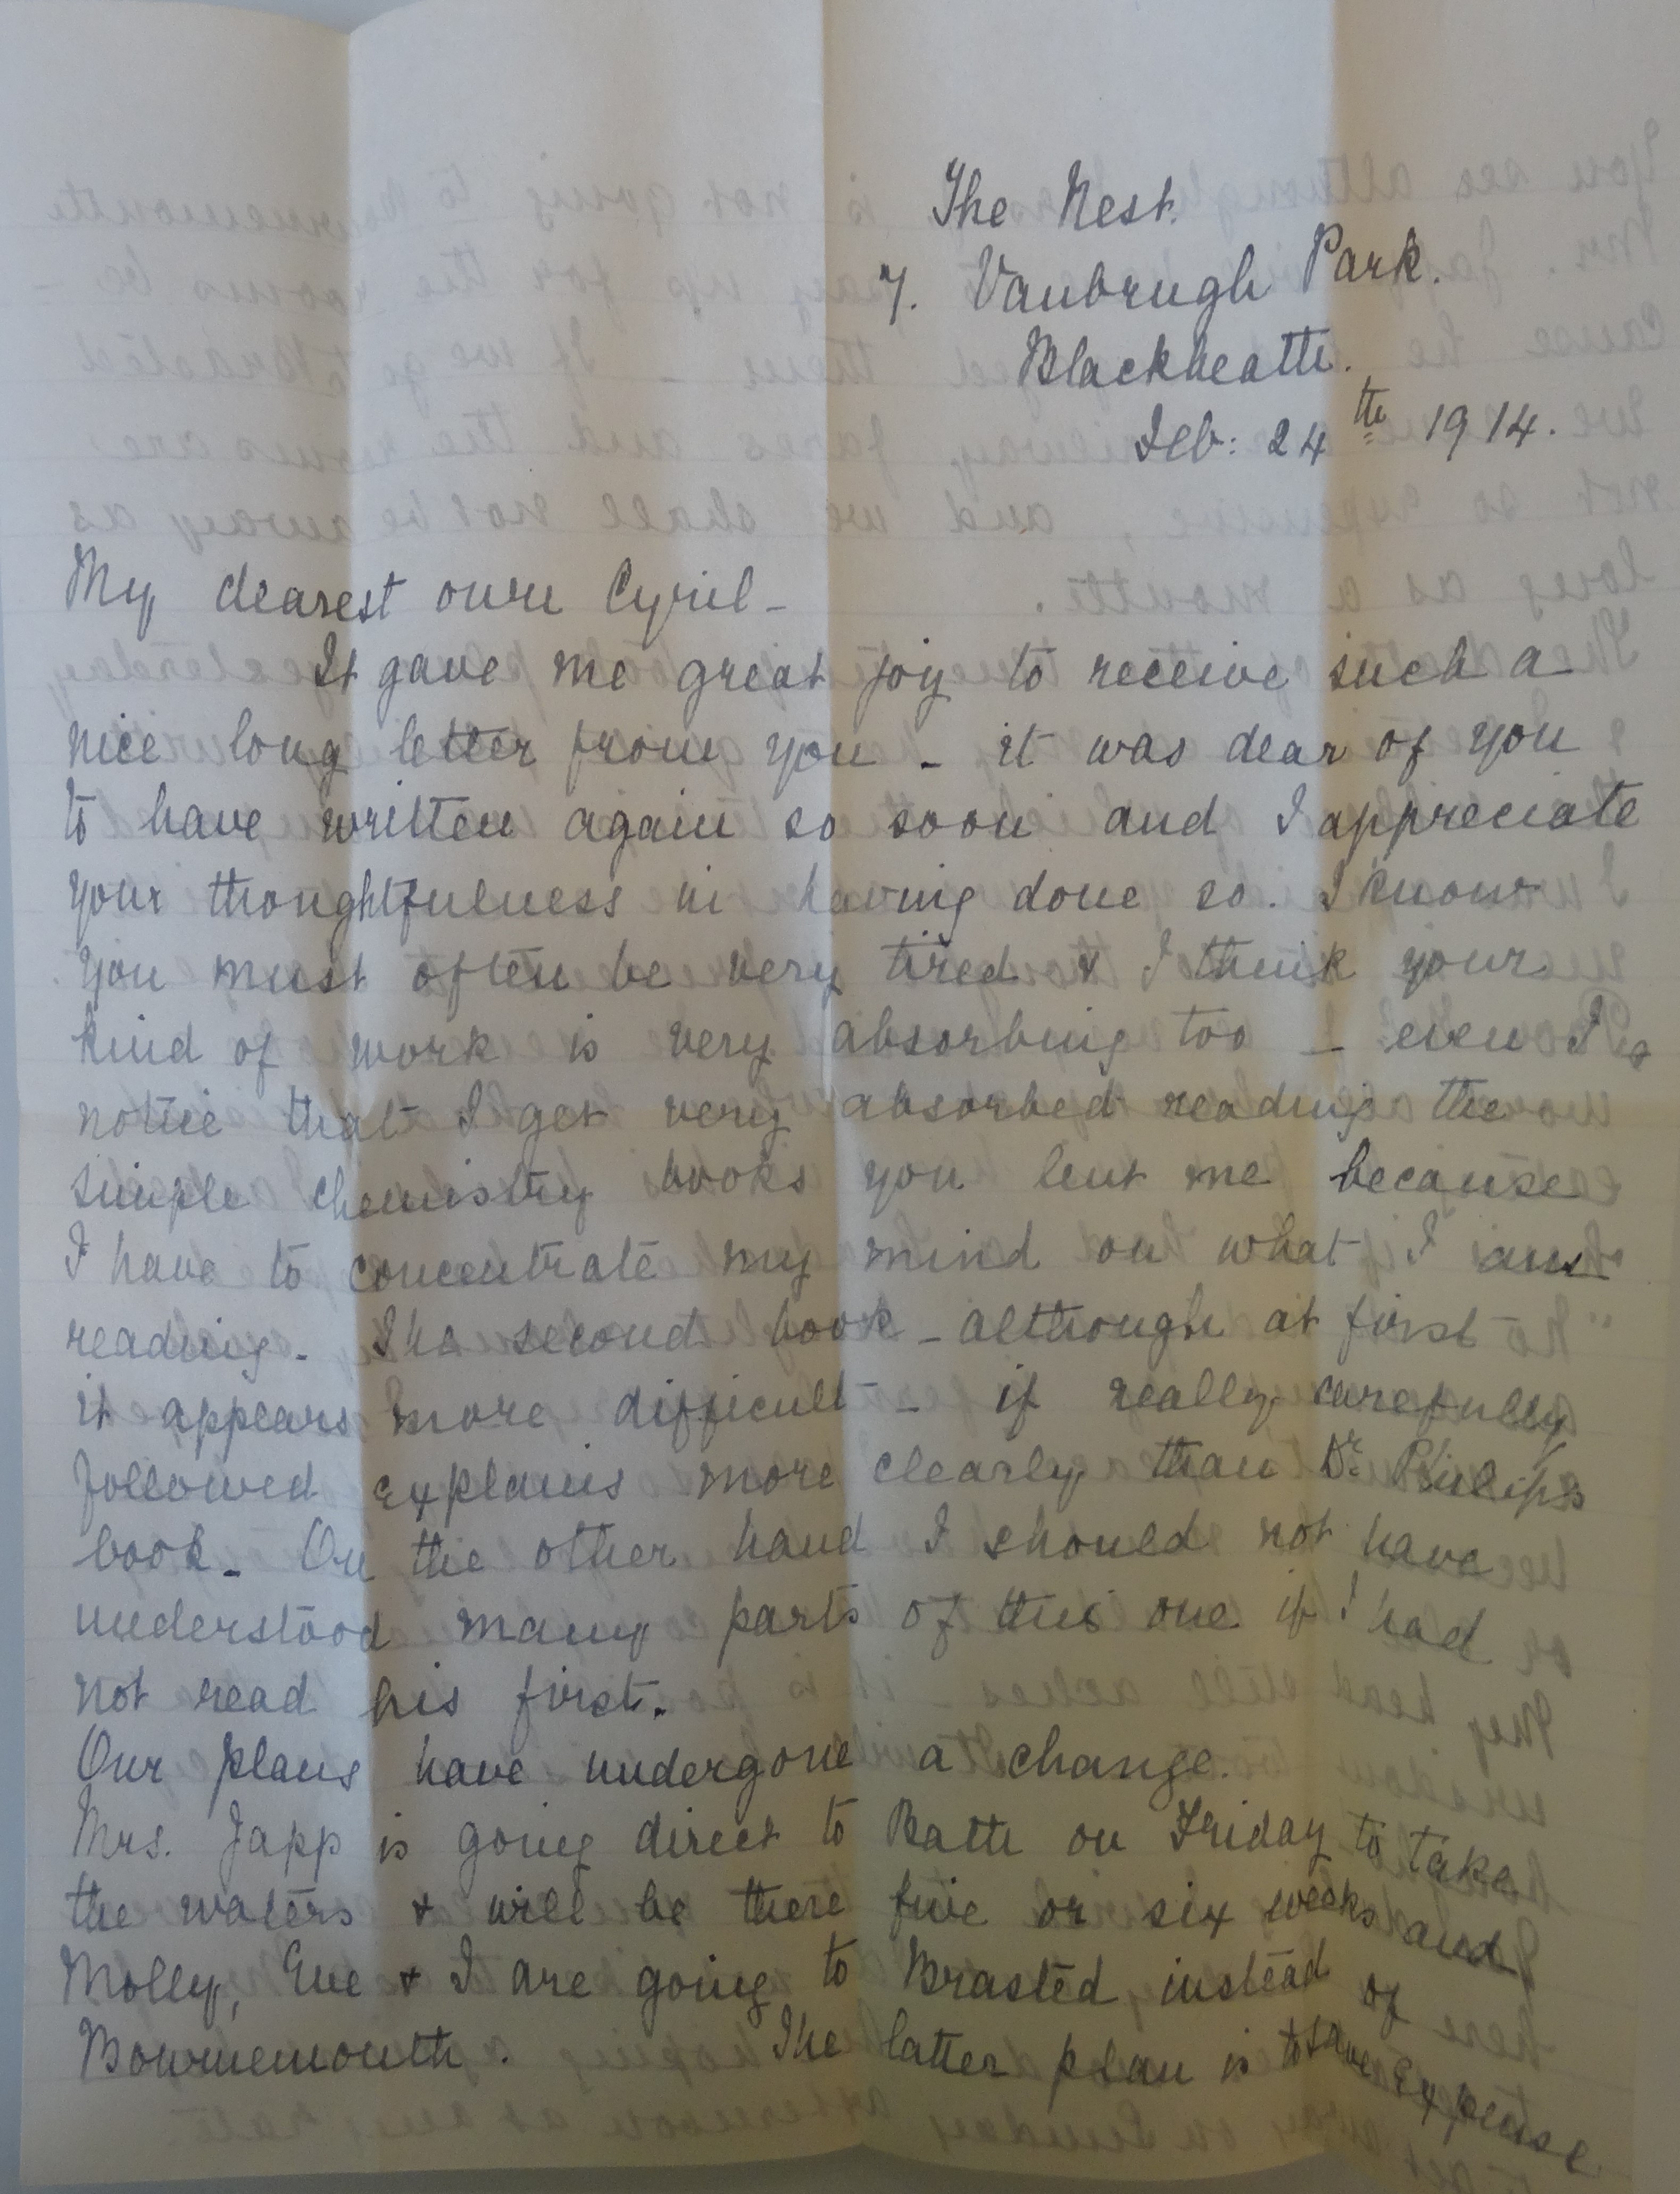 The Nest.
7. Vanbrugh Park.
Blackheath.
Feb: 24th 1914.
My dearest own Cyril -
It gave me great joy to receive such a
nice long letter from you - it was dear of you
to have written again so soon and I appreciate
your thoughtfulness in having done so. I know
you must often be very tired & I think your
kind of work is very absorbing too - even I
notice that I get very absorbed reading the
simple chemistry books you lent me because
I have to concentrate my mind on what I am
reading. The second book - although at first
it appears more difficult - if really carefully
followed explains more clearly than Dr. Philips
book. On the other hand I should not have
understood many parts of this one if I had
not read his first.
Our plans have undergone a change.
Mrs. Japp is going direct to Bath on Friday to take
the waters & will be there five or six weeks and
Molly, Eve & I are going to Brasted instead of
Bournemouth. The latter plan is to save expense